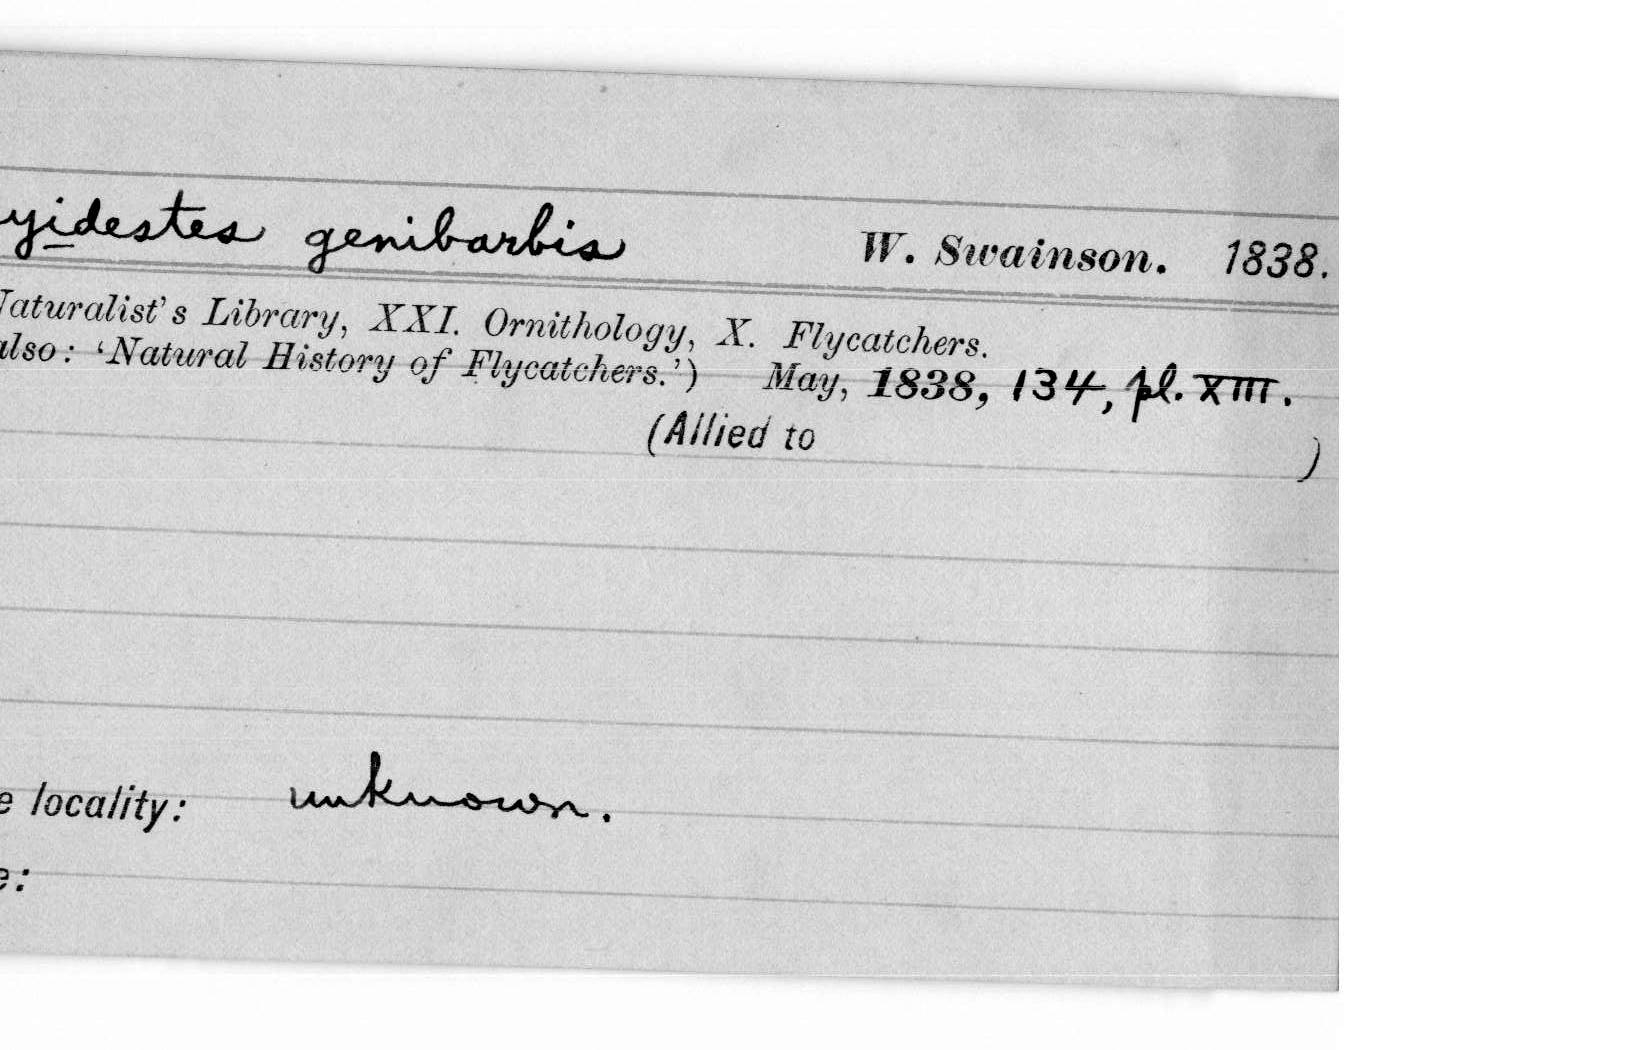 yidestes genibarbis W. Swainson. 1838.
Naturalist's Library, XXI. Ornithology, X. Flycatchers.
also: 'Natural History of Flycatchers.') May, 1838, 134, pl. XIII.
(Allied to )
e locality: unknown.
e: